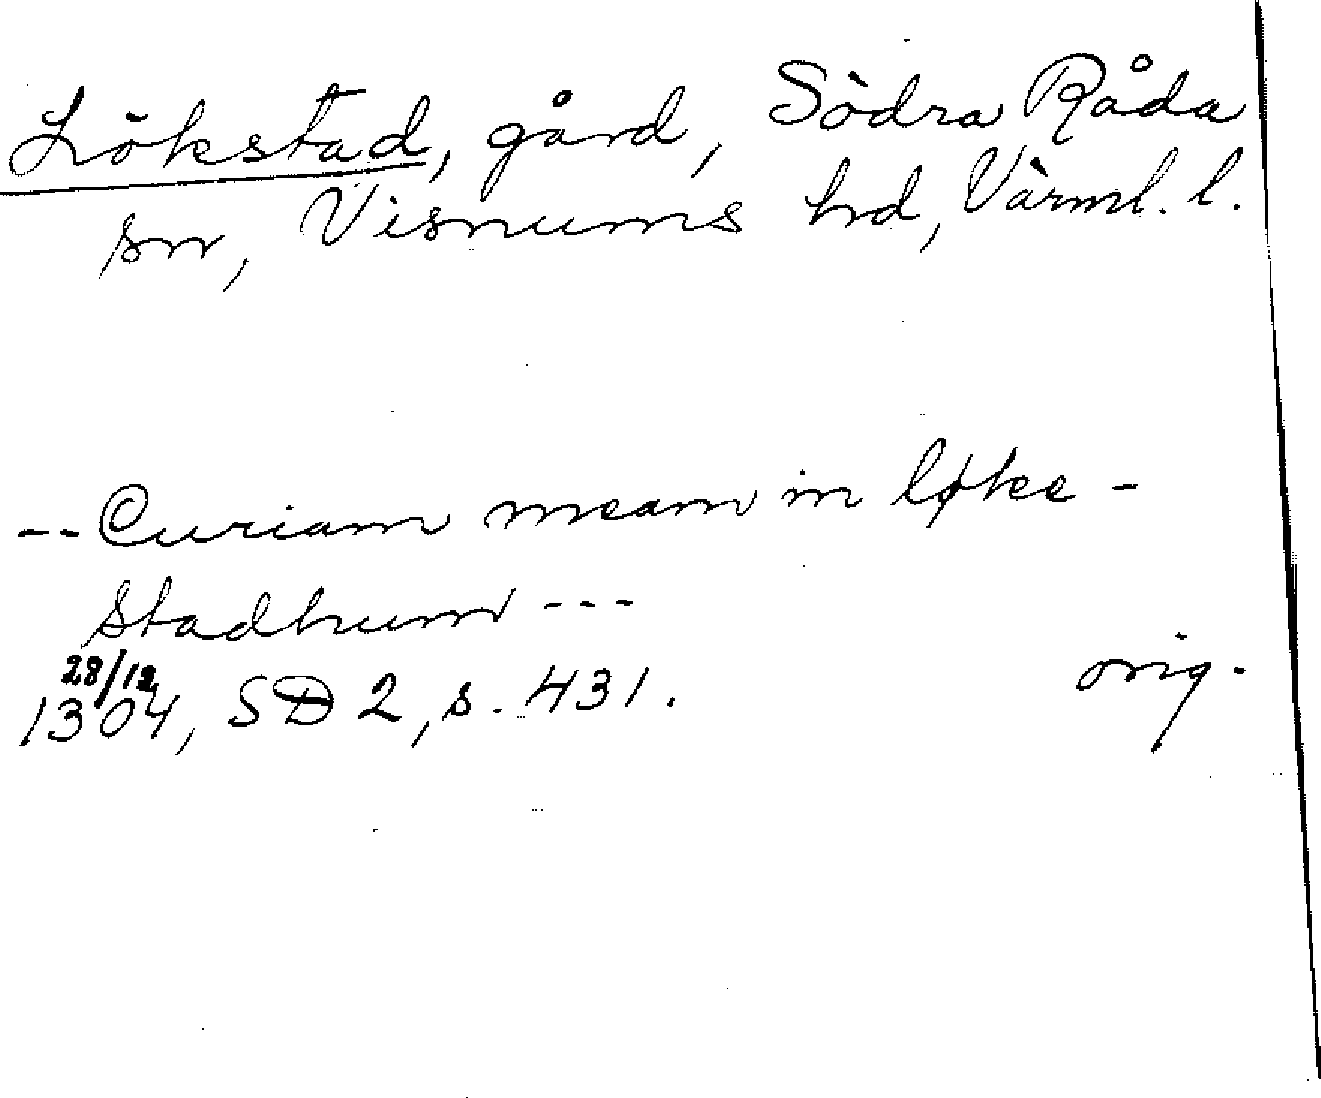 Lökstad, gård, Södra Råda
sn, Visnums hd, Värml. l.
-- Curiam meam in løke -
stadhum ---
28/12
1304, SD 2, s. 431. orig.